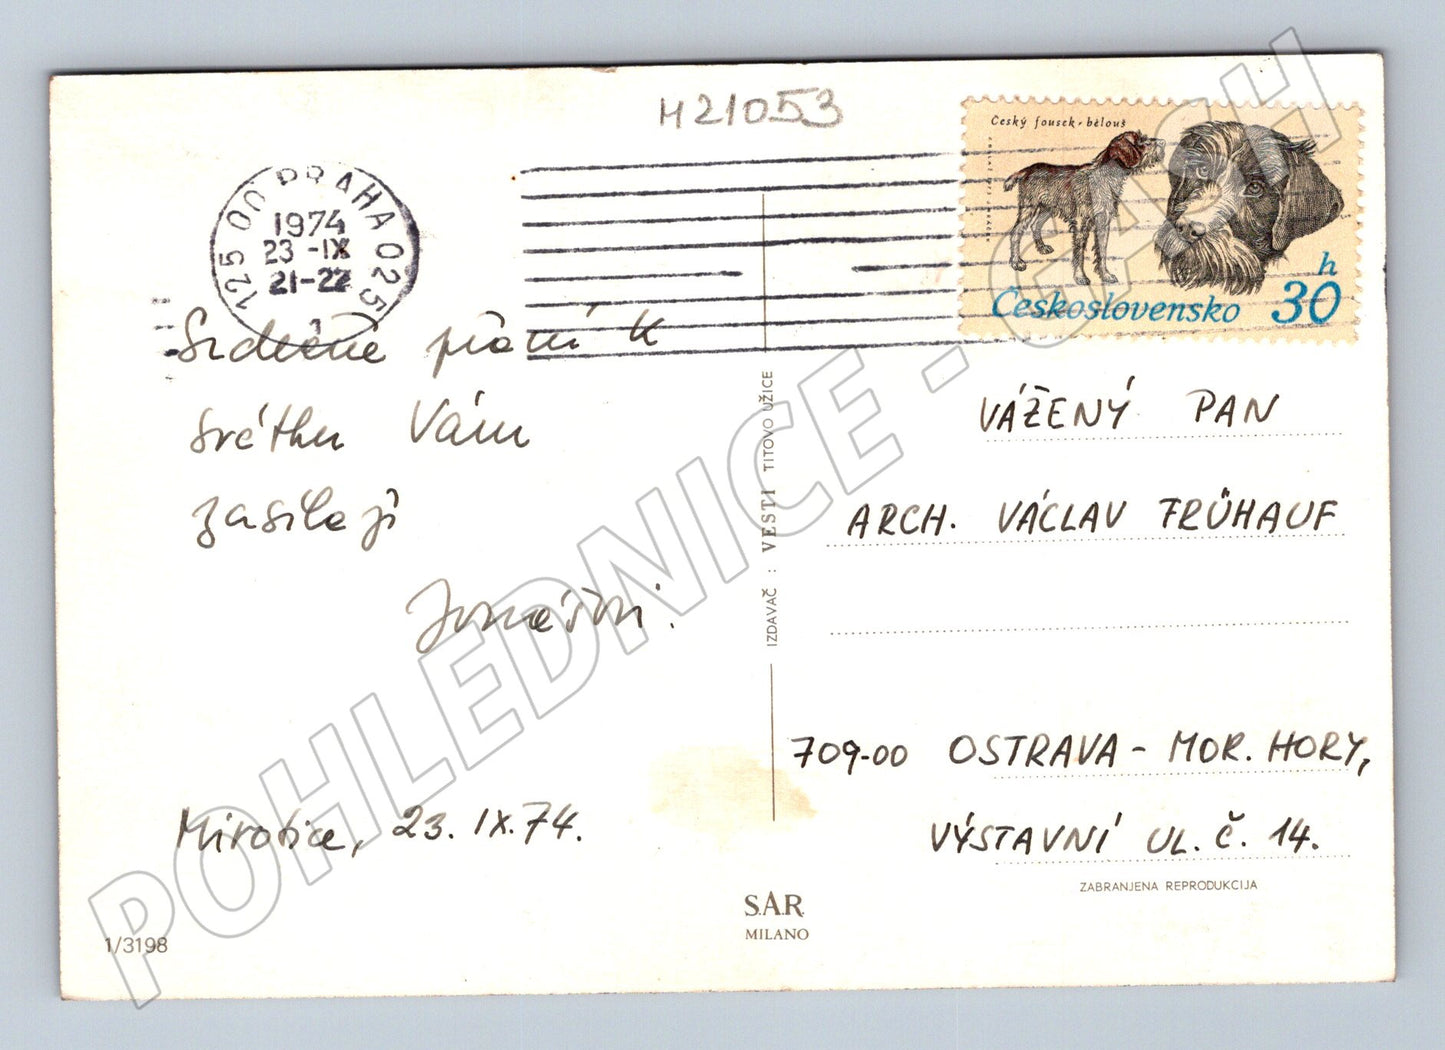 H21053
Český fousek - bělouš
h
Československo 30
125 00 PRAHA 025
1974
23 -IX
21-22
1
Srdečné přání k
svátku Vám
zasílají
Mirotice, 23. IX. 74.
1/3198
IZDAVAČ : VESTI TITOVO UŽICE
S.A.R.
MILANO
VÁŽENÝ PAN
ARCH. VÁCLAV FRÜHAUF
709-00 OSTRAVA - MOR. HORY,
VÝSTAVNÍ UL. Č. 14.
ZABRANJENA REPRODUKCIJA
POHLEDNICE - CASH